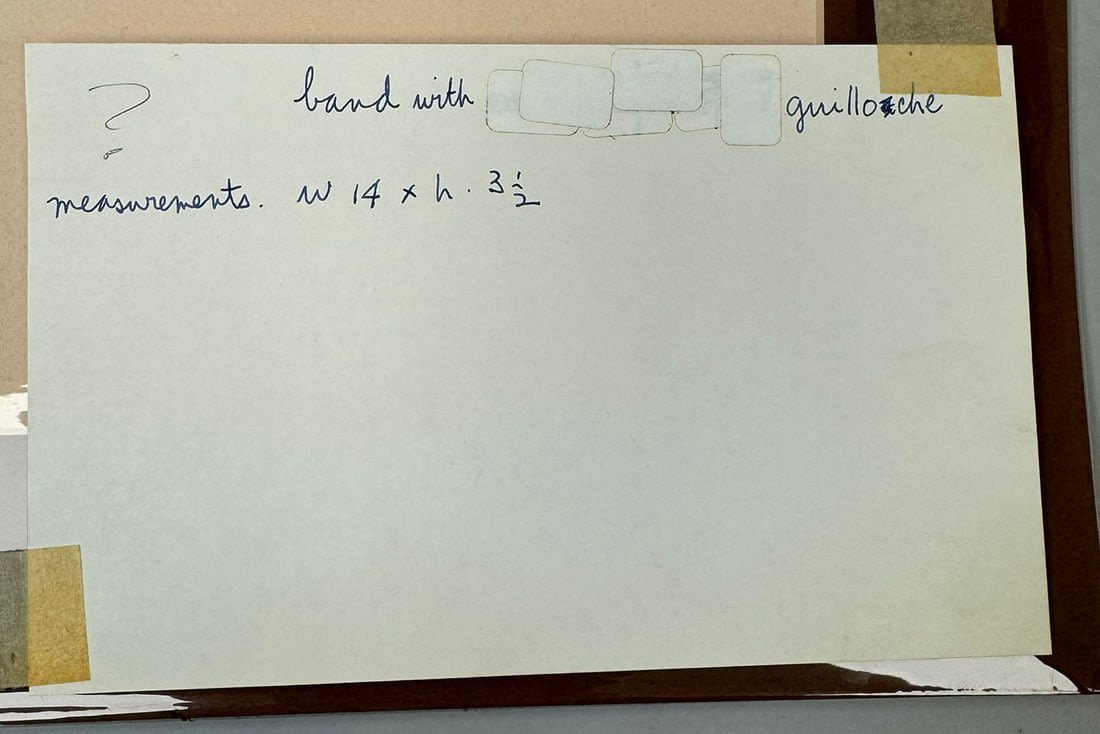 ? band with guilloche
measurements. w 14 x h. 3 1/2